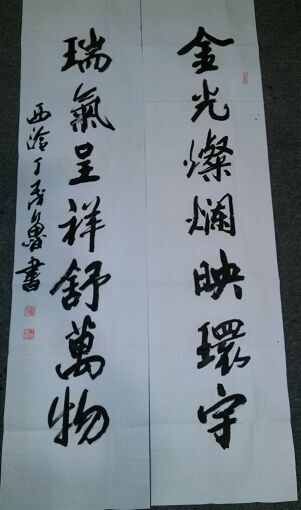 金光燦爛映環宇
瑞氣呈祥舒萬物
西泠丁茂魯書